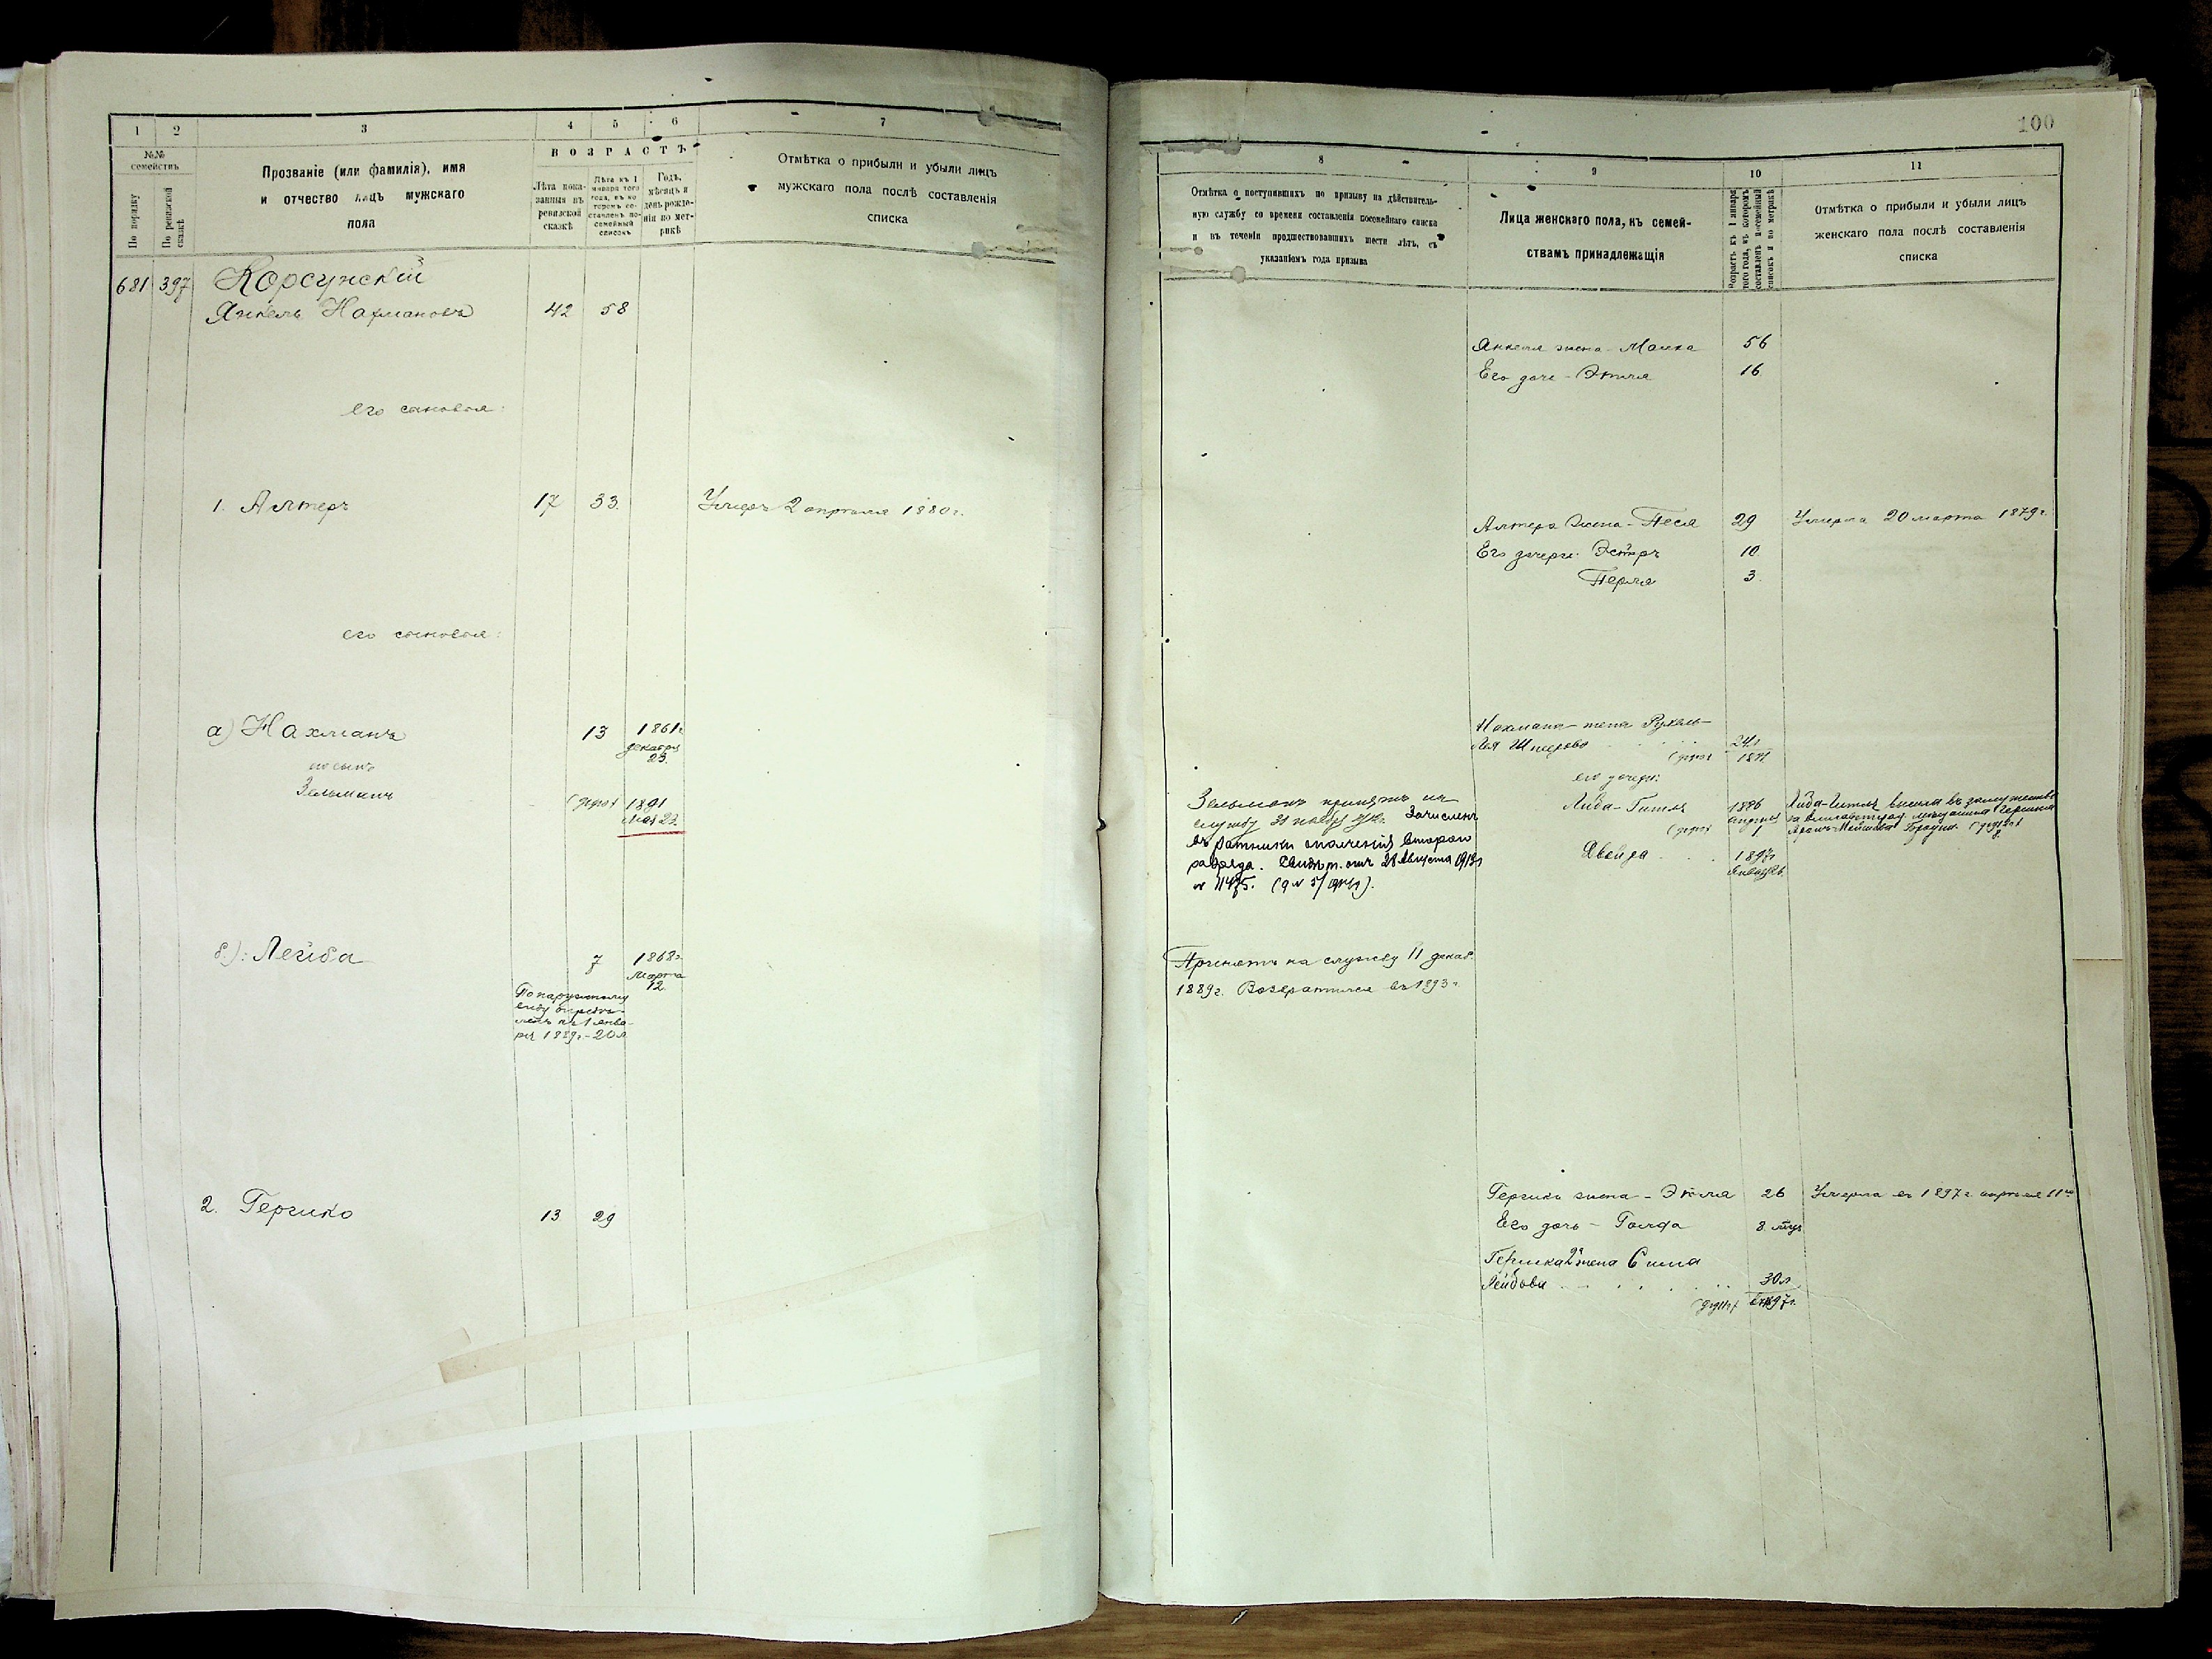 1 2 3 4 5 6 7
№№ семействъ
По порядку
По ревизской сказкѣ
Прозваніе (или фамилія), имя
и отчество лицъ мужскаго
пола
ВОЗРАСТЪ
Лѣта пока-
занныя въ
ревизской
сказкѣ
Лѣта къ 1
января того
года, въ ко-
торомъ со-
ставленъ по-
семейный
списокъ
Годъ,
мѣсяцъ и
день рожде-
нія по мет-
рикѣ
Отмѣтка о прибыли и убыли лицъ
мужскаго пола послѣ составленія
списка
681 397 Корсунскій
Янкель Нахмановъ 42 58
его сыновья:
1. Алтеръ 17 33. Умеръ 2 апрѣля 1880 г.
его сыновья:
а) Нахманъ 13 1861 г.
декабря
23.
Зельманъ
1891
мая 23
б.): Лейба 7 1868 г.
марта
12.
По наружному
виду опредѣ-
ленъ къ 1 янва-
ря 1889 г. - 20 л.
2. Гершко 13 29
100
8 9 10 11
Отмѣтка о поступившихъ по призыву на дѣйствитель-
ную службу со времени составленія посемейнаго списка
и въ теченіи предшествовавшихъ шести лѣтъ, съ
указаніемъ года призыва
Лица женскаго пола, къ семей-
ствамъ принадлежащія
Возрастъ къ 1 января
того года, въ которомъ
составленъ посемейный
списокъ и по метрикѣ
Отмѣтка о прибыли и убыли лицъ
женскаго пола послѣ составленія
списка
Янкеля жена - Малка 56
Его дочь - Этля 16
Алтера жена - Песя 29 Умерла 20 марта 1879 г.
Его дочери: Эстеръ 10
Перля 3.
Нахмана - жена Рухель-
Лея 24 л
его дочери:
Зельманъ принятъ на
службу Зачисленъ
въ ратники ополченія второго
разряда. Свид. отъ 28 Августа 1913 г
№ 11475.
Хида-Гитля 1886
апрѣля
1
Хида-Гитля вышла въ замужество
за мѣщанина
Двейра 1897 г
Января
Принятъ на службу 11 декаб.
1889 г. Возвратился въ 1893 г.
Гершки жена - Этля 26 Умерла въ 1897 г. апрѣля 11 го
Его дочь - Голда 8. мѣс.
Гершка 2я жена Сима
Лейбова 30 л
1897 г.